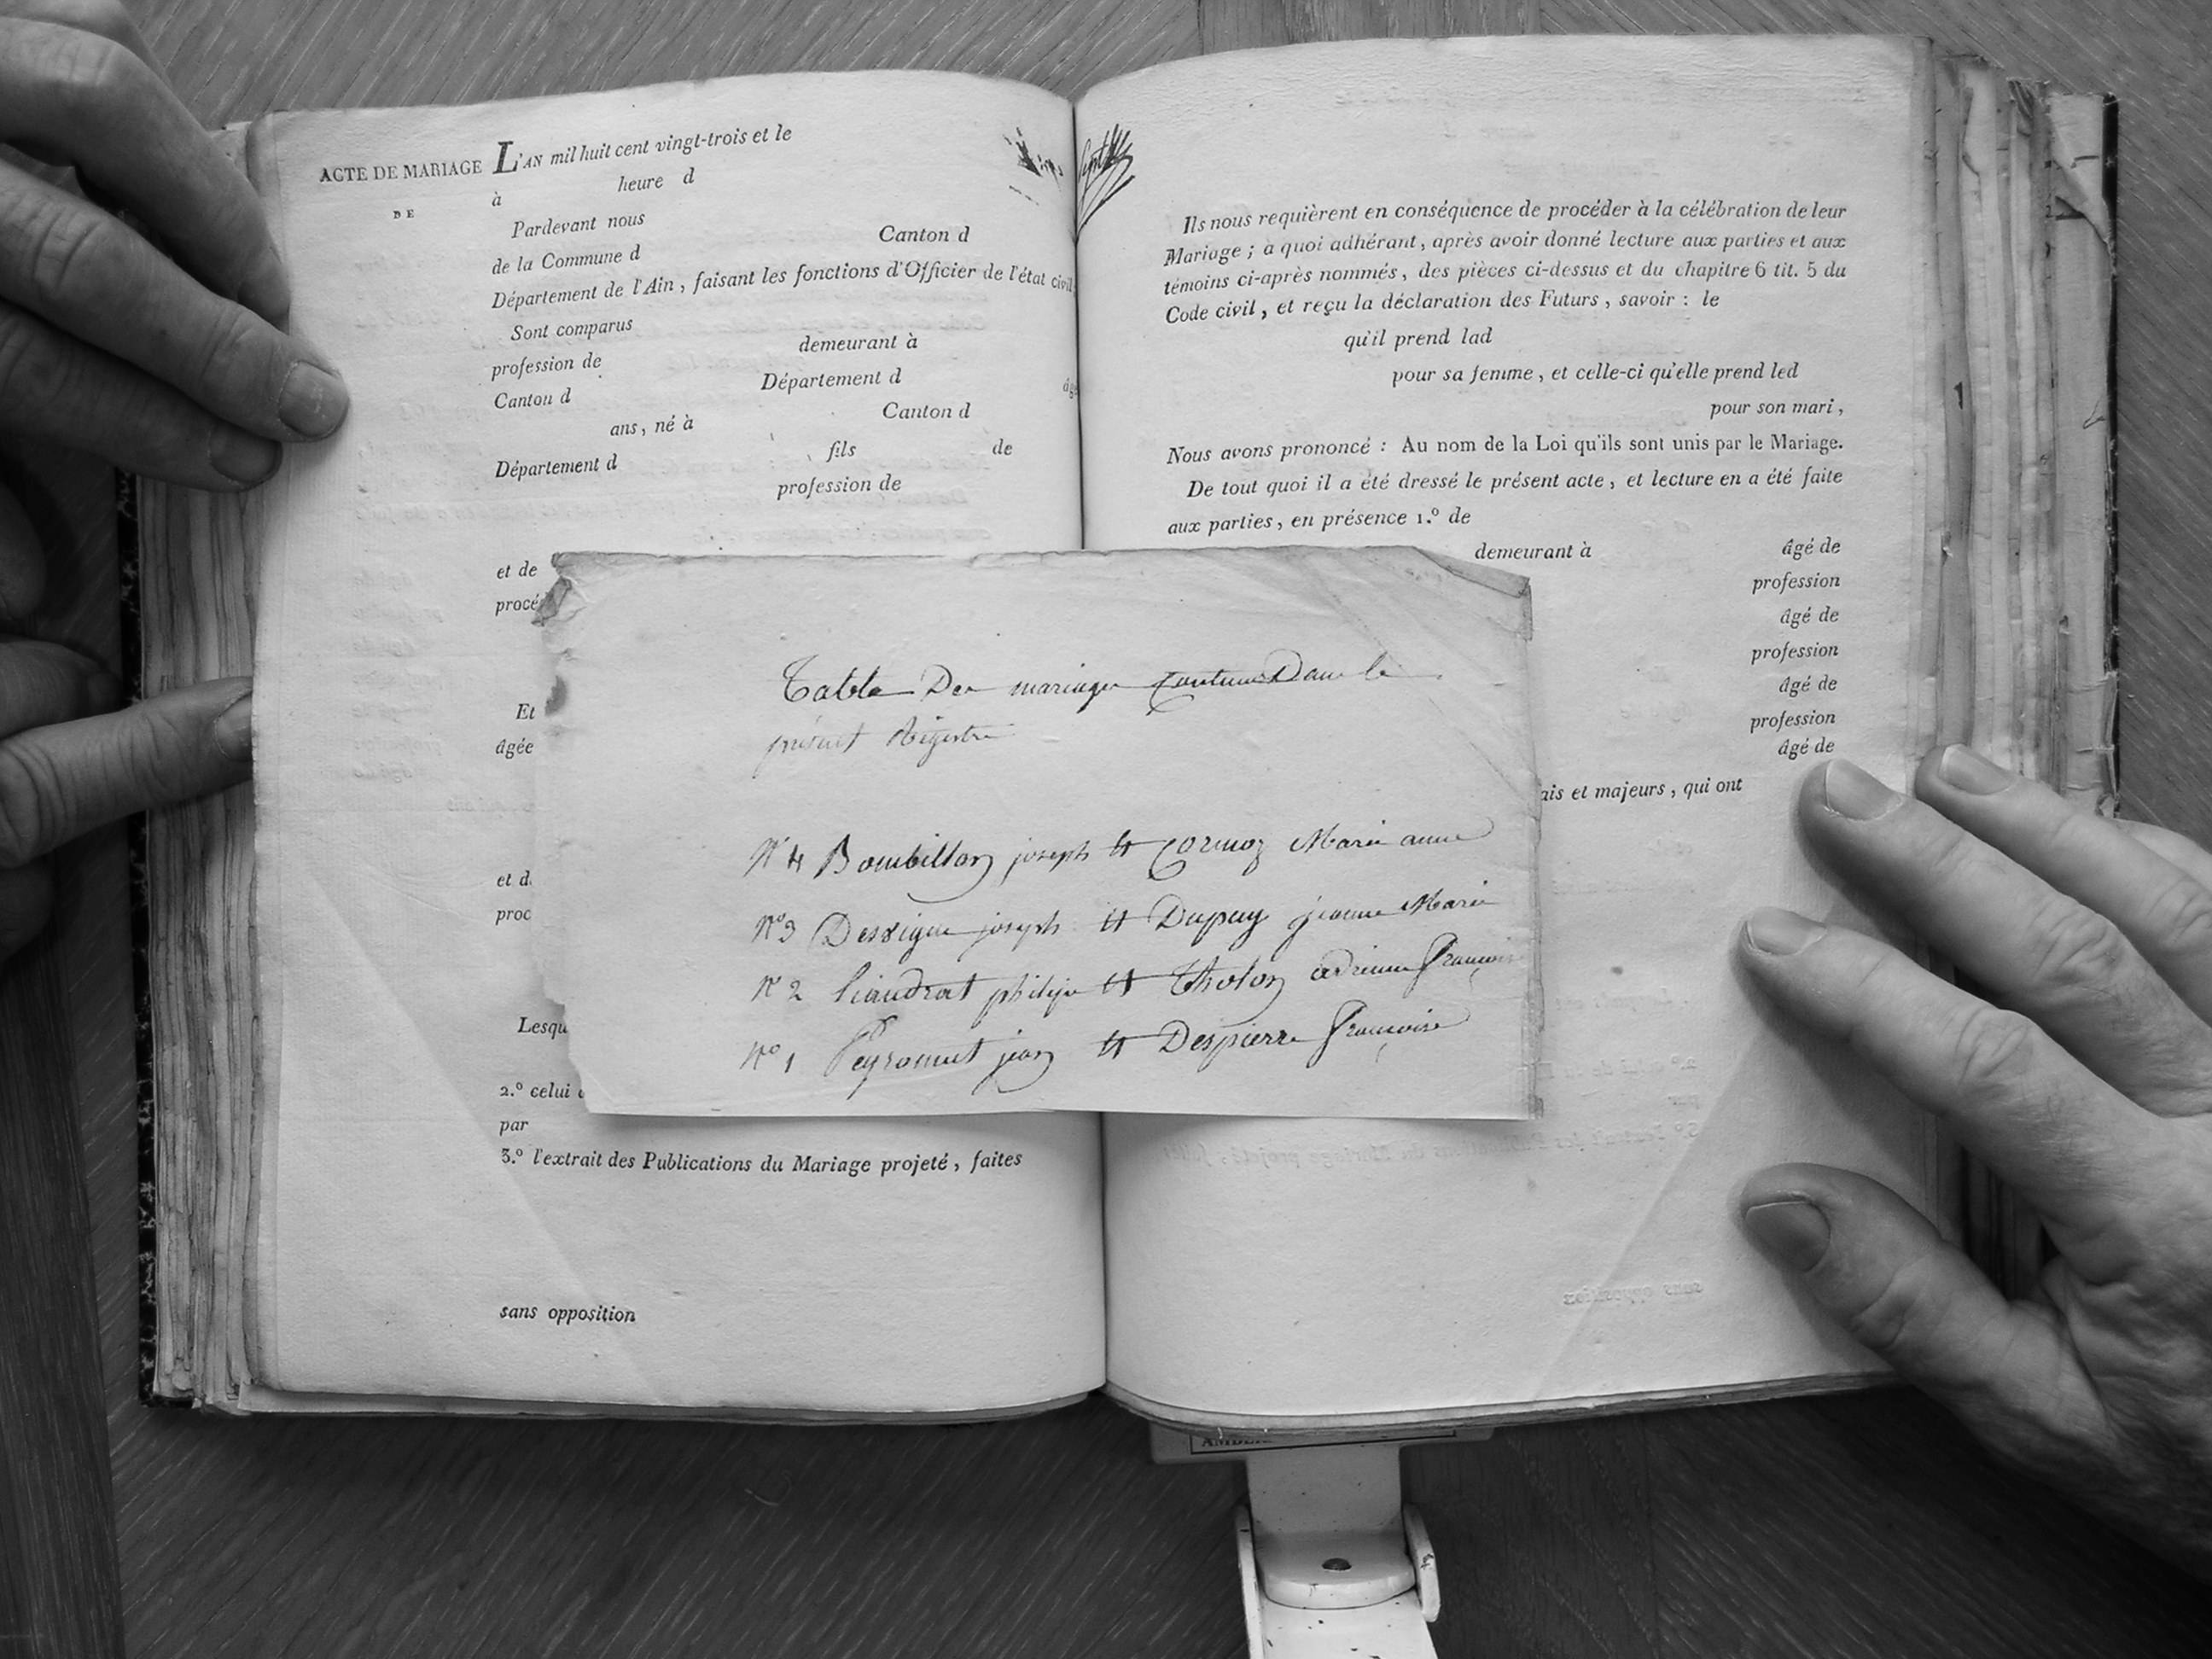 ACTE DE MARIAGE
DE
L'AN mil huit cent vingt-trois et le
à heure d
Pardevant nous
de la Commune d Canton d
Département de l'Ain, faisant les fonctions d'Officier de l'état civil
Sont comparus
profession de demeurant à
Canton d Département d âgé
ans, né à Canton d
Département d fils de
profession de
et de
procé
Et
âgée
et d
proc
Lesqu
2.º celui
par
3.º l'extrait des Publications du Mariage projeté, faites
sans opposition
Table Des mariages Contenus Dans le
présent Régistre
Nº 4 Bombillon joseph et Cormoz Marie anne
Nº 3 Desvigne joseph et Dupuy jeanne Marie
Nº 2 Liaudrat philipe et Tholon adrienne Françoise
Nº 1 Peyromet jean et Despierre Françoise
sept
Ils nous requièrent en conséquence de procéder à la célébration de leur
Mariage ; a quoi adhérant, après avoir donné lecture aux parties et aux
témoins ci-après nommés, des pièces ci-dessus et du chapitre 6 tit. 5 du
Code civil, et reçu la déclaration des Futurs, savoir : le
qu'il prend lad
pour sa femme, et celle-ci qu'elle prend led
pour son mari,
Nous avons prononcé : Au nom de la Loi qu'ils sont unis par le Mariage.
De tout quoi il a été dressé le présent acte, et lecture en a été faite
aux parties, en présence 1.º de
demeurant à âgé de
profession
âgé de
profession
âgé de
profession
âgé de
ais et majeurs, qui ont